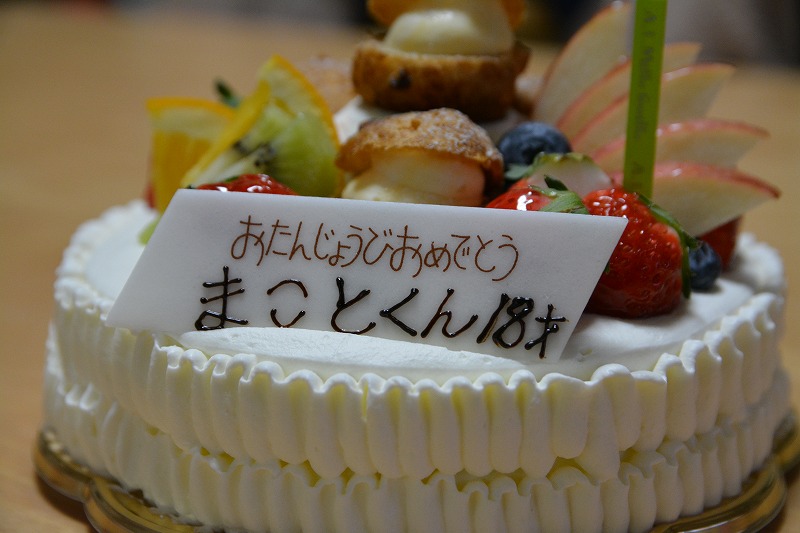 おたんじょうびおめでとう
まことくん18才